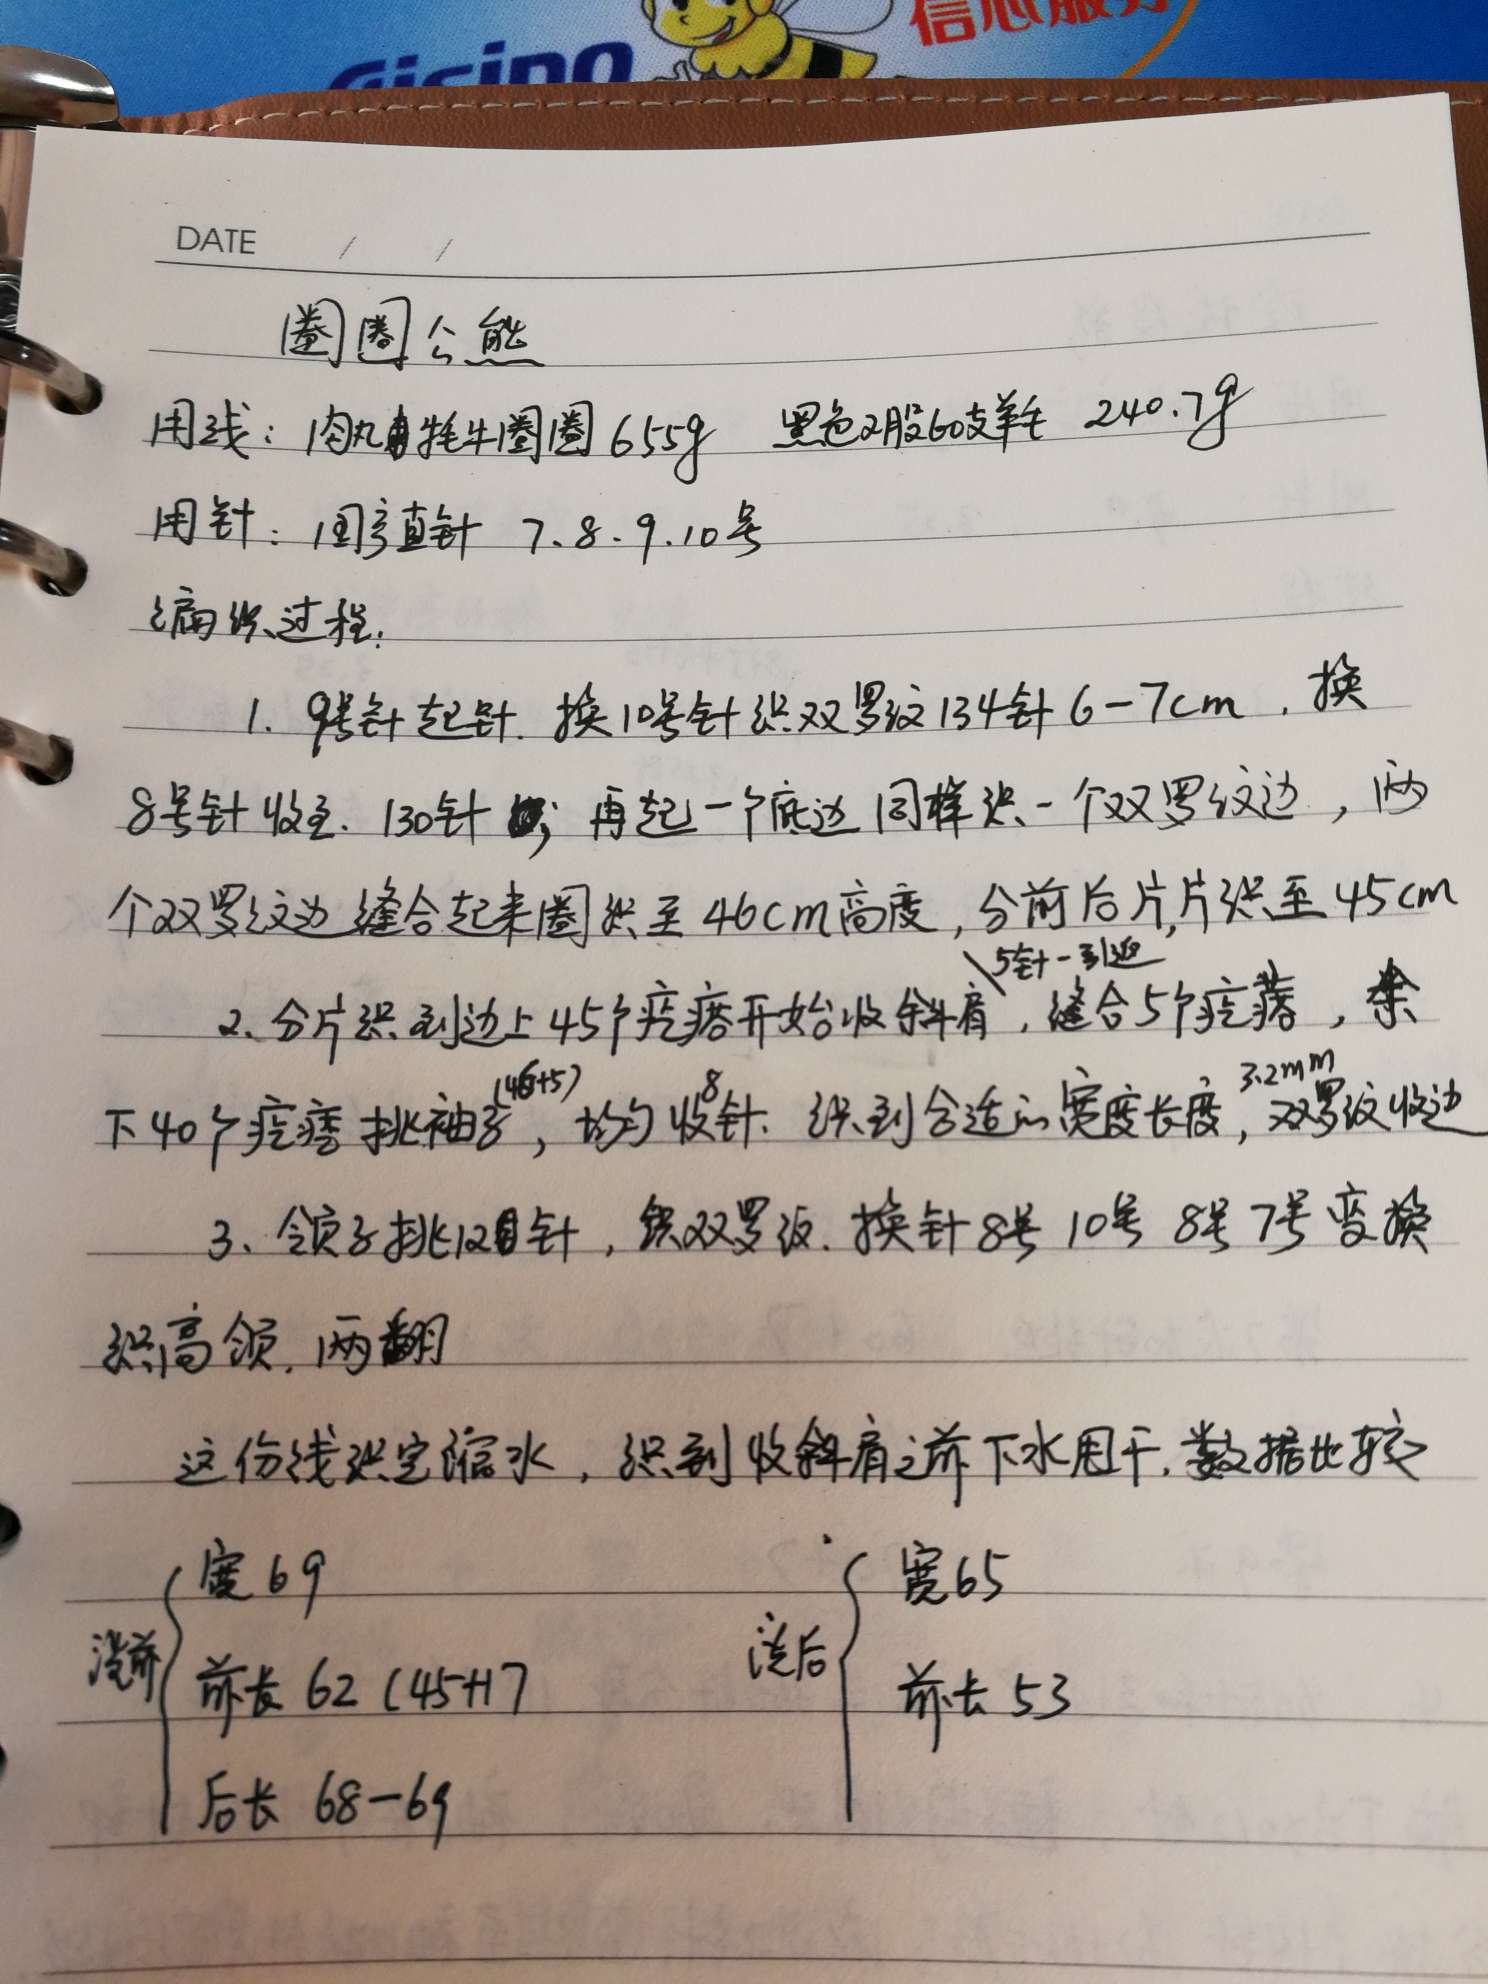 信心服务
Aisino
DATE / /
圈圈公熊
用线：肉丸牦牛圈圈655g 黑色2股60支羊毛 240.7g
用针：国产直针 7.8.9.10号
编织过程：
1. 9号针起针. 换10号针织双罗纹134针6-7cm. 换
8号针收至. 130针; 再起一个底边同样织一个双罗纹边，两
个双罗纹边缝合起来圈织至46cm高度，分前后片,片织至45cm
5针一引返
2、分片织到边上45个疙瘩开始收斜肩，缝合5个疙瘩，余
(46+5) 8 3.2mm
下40个疙瘩挑袖子，均匀收针. 织到合适的宽度长度，双罗纹收边
3、领子挑12针，织双罗纹. 换针8号 10号 8号 7号变换
织高领. 两翻
这份线织完缩水，织到收斜肩之前下水甩干. 数据比较
洗前 宽69 洗后 宽65
前长 62 (45+17 前长 53
后长 68-69